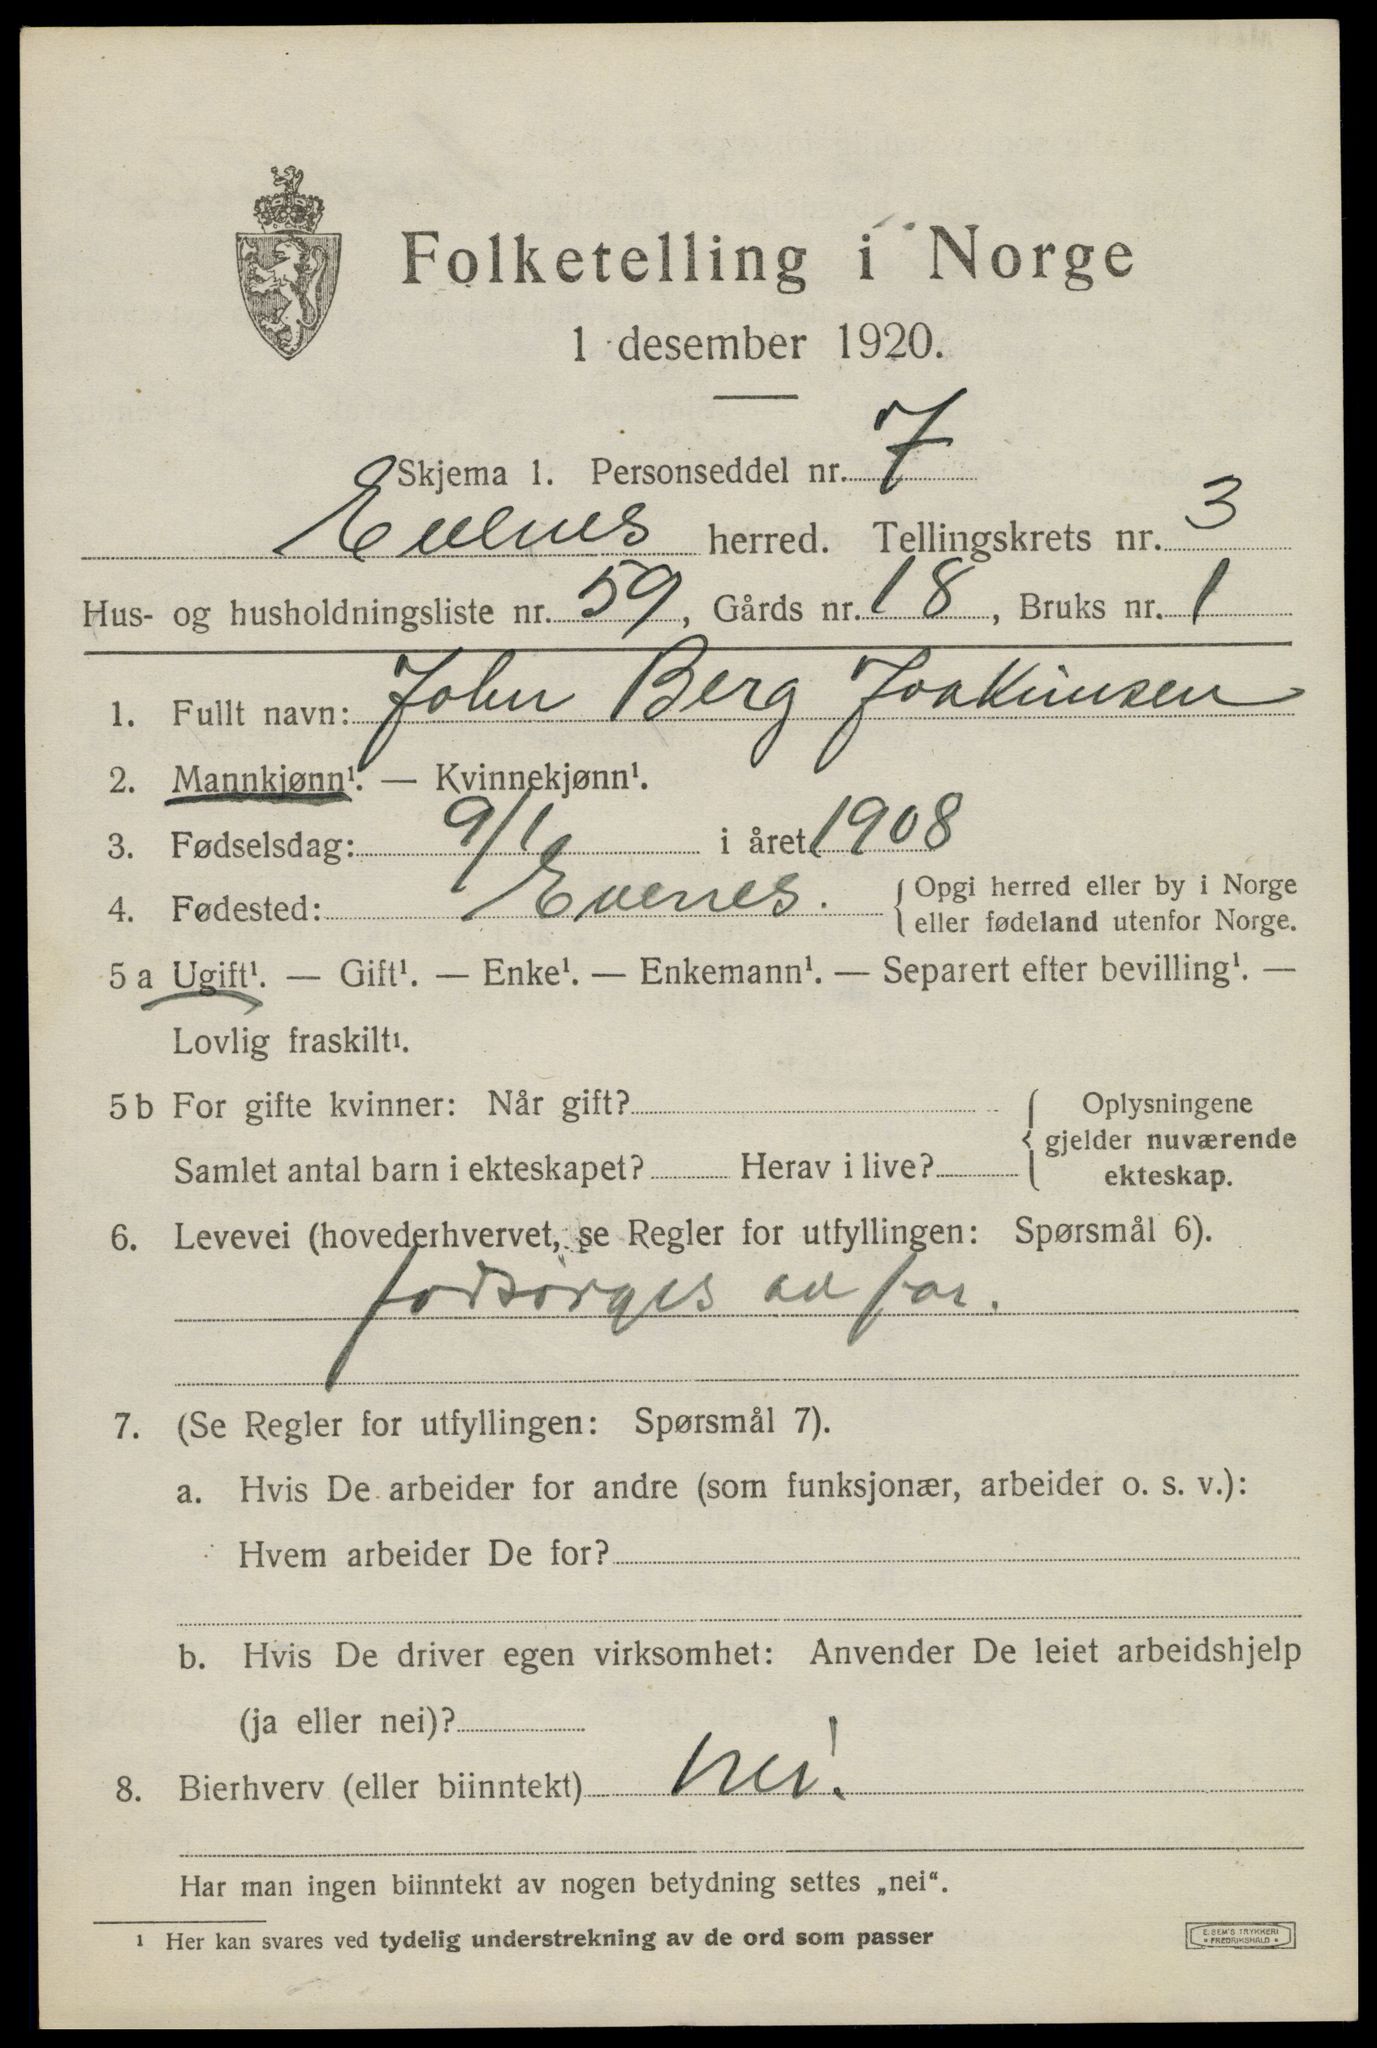 Folketelling i Norge
1 desember 1920.
Skjema 1. Personseddel nr. 7
Evenes herred. Tellingskrets nr. 3
Hus- og husholdningsliste nr. 59, Gårds nr. 18, Bruks nr. 1
1. Fullt navn: John Berg Joakimsen
2. Mannkjønn¹. — Kvinnekjønn¹.
3. Fødselsdag: 9/1 i året 1908
4. Fødested: Evenes. { Opgi herred eller by i Norge
eller fødeland utenfor Norge.
5 a Ugift¹. — Gift¹. — Enke¹. — Enkemann¹. — Separert efter bevilling¹. —
Lovlig fraskilt¹.
5 b For gifte kvinner: Når gift?
Samlet antal barn i ekteskapet? Herav i live?
{ Oplysningene
gjelder nuværende
ekteskap.
6. Levevei (hovederhvervet, se Regler for utfyllingen: Spørsmål 6).
forsørges av far.
7. (Se Regler for utfyllingen: Spørsmål 7).
a. Hvis De arbeider for andre (som funksjonær, arbeider o. s. v.):
Hvem arbeider De for?
b. Hvis De driver egen virksomhet: Anvender De leiet arbeidshjelp
(ja eller nei)?
8. Bierhverv (eller biinntekt) nei!
Har man ingen biinntekt av nogen betydning settes „nei“.
¹ Her kan svares ved tydelig understrekning av de ord som passer
E. SEM'S TRYKKERI
FREDRIKSHALD